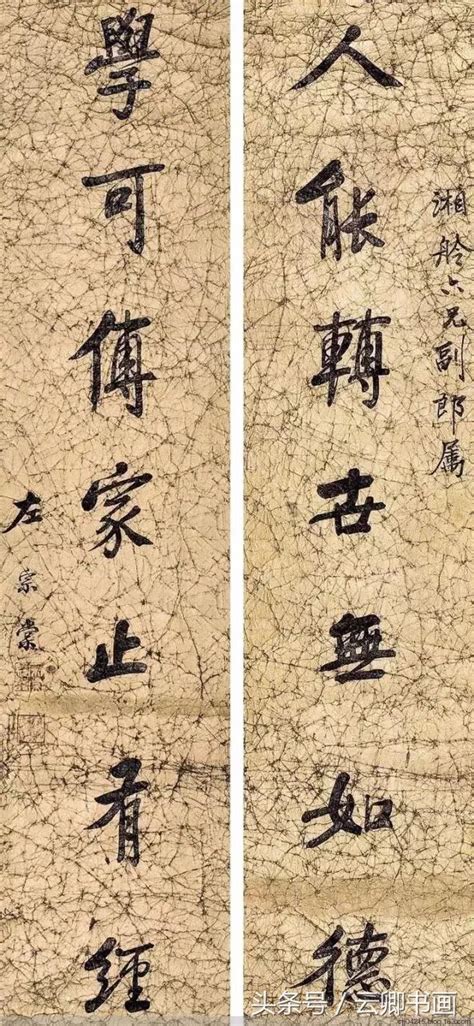 湘舲六兄副郎属
人能轉世無如德
學可傳家止有經
左宗棠
头条号／云卿书画